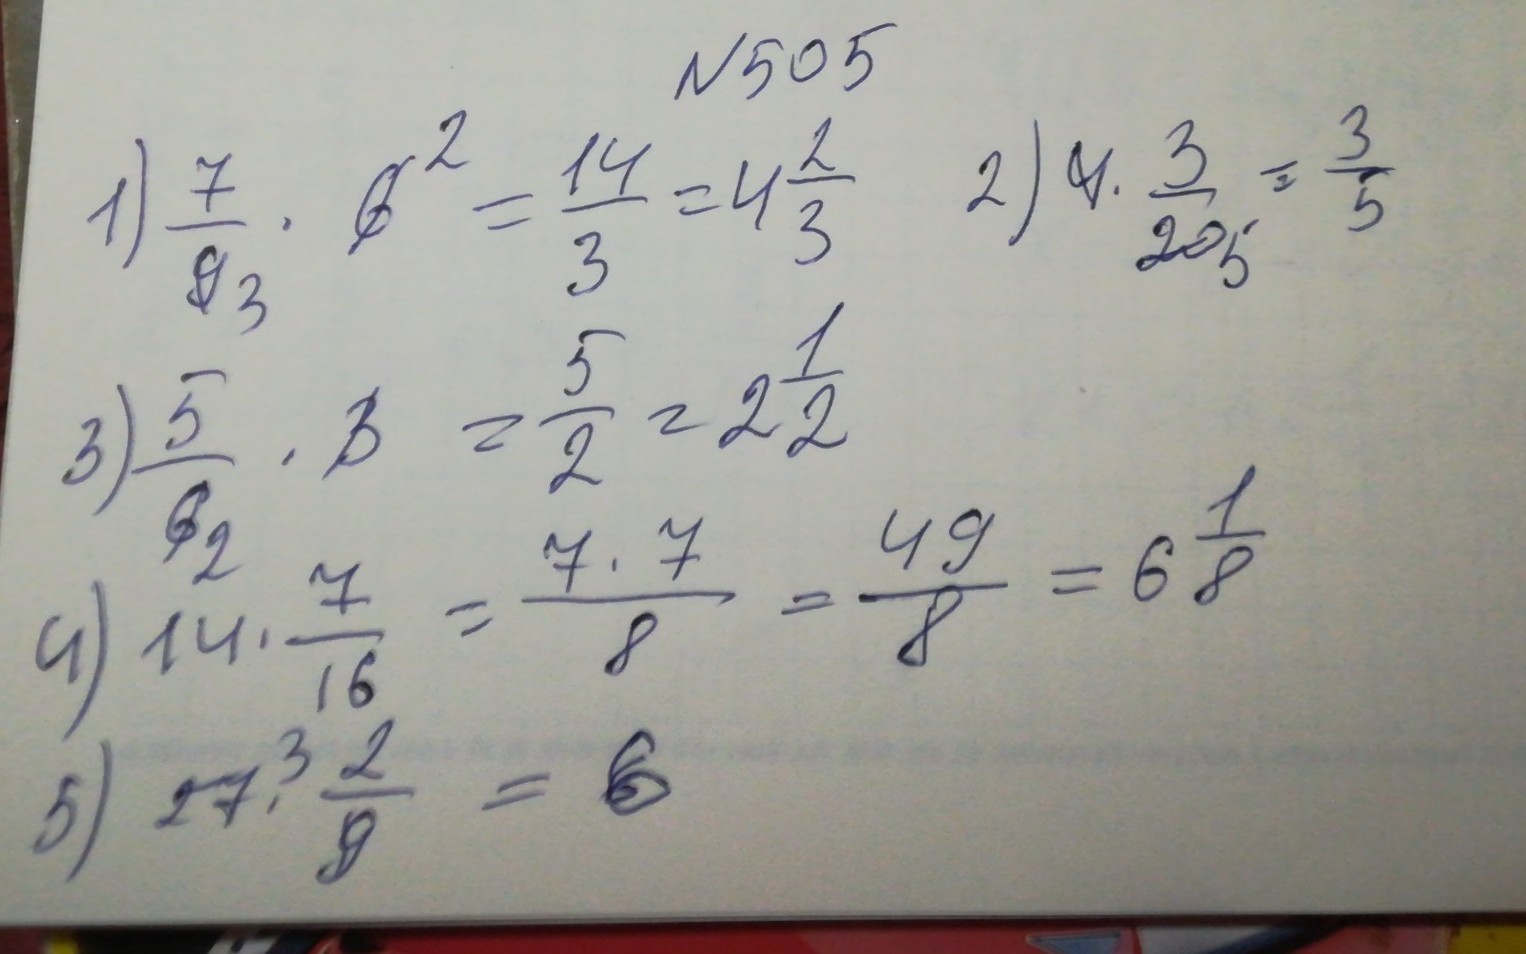 N505
1) 7/9 3 · 6 2 = 14/3 = 4 2/3 2) 4 · 3/20 5 = 3/5
3) 5/6 2 · 3 = 5/2 = 2 1/2
4) 14 · 7/16 = 7 · 7/8 = 49/8 = 6 1/8
5) 27 3 · 2/9 = 6